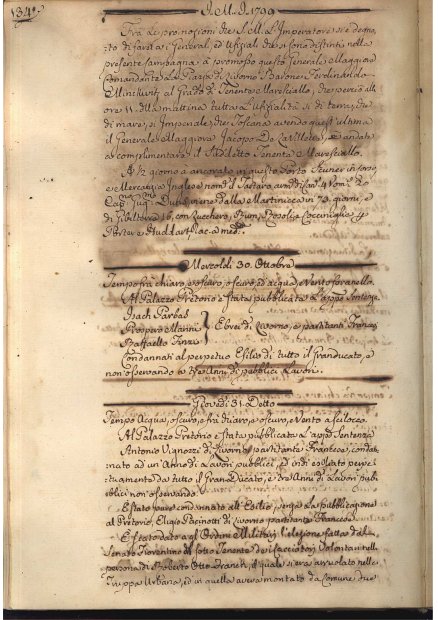 134.
I. M. I. 1799
Fra le promozioni che S. M. L'Imperatore si è degna-
to di fare ai Generali, ed Ufiziali che si sono distinti nella
presente Campagna à promosso questo Generale Maggiore
Comandante La Piazza di Livorno Barone Ferdinando
al Grado di Tenente Maresciallo, che perciò alle
ore 11. della mattina tutta L'Ufizialità si di terra, che
di mare, si Imperiale, che Toscana avendo quest'ultima
il Generale Maggiore Jacopo De Lavillette, è andata
a complimentare il Suddetto Tenente Maresciallo.
A giorno a ancorato in questo Porto
e Mercantia Inglese nom. il Tartaro
Cap. viene dalla Martinicca in 73. giorni, e
di Gibilterra 16, con Zucchero, Rum, Cocciniglia
Porter e Huddart
Mercoldì 30. Ottobre
Tempo frà chiaro, e oscuro, oscuro, ed acqua, e Vento foranello.
Al Palazzo Pretorio è stata pubblicata L'app. Sentenza
Isach Parbas
Prospero Marini
Raffaello Finzi
Ebrei di Livorno, e partitanti Francesi
Condannati al perpetuo Esilio di tutto il Granducato, e
non osservando a Tre Anni di pubblici Lavori.
Giovedì 31. Detto
Tempo Acqua, oscuro, e frà chiaro, e oscuro, e Vento a Scilocco.
Al Palazzo Pretorio è stata pubblicata L'app. Sentenza
Antonio Vignozzi di Livorno partitante Francese, condan-
nato ad un'Anno di Lavori pubblici, ed indi esiliato perpe-
tuamente da tutto il Gran Ducato, e tre Anni di Lavori pub-
blici non osservando.
È stato pure condannato all'Esilio, senza La pubblicazione
al Pretorio, Eligio Pacinotti di Livorno partitante Francese.
È stato dato agl'Ordini Militari l'elezione fatta dal
Senato Fiorentino di sotto Tenente dei Cacciatori Volontari nella
persona di Roberto Otto Franchi, il quale si era arruolato nelle
Truppa Urbana, ed in quella aveva montato da Comune due